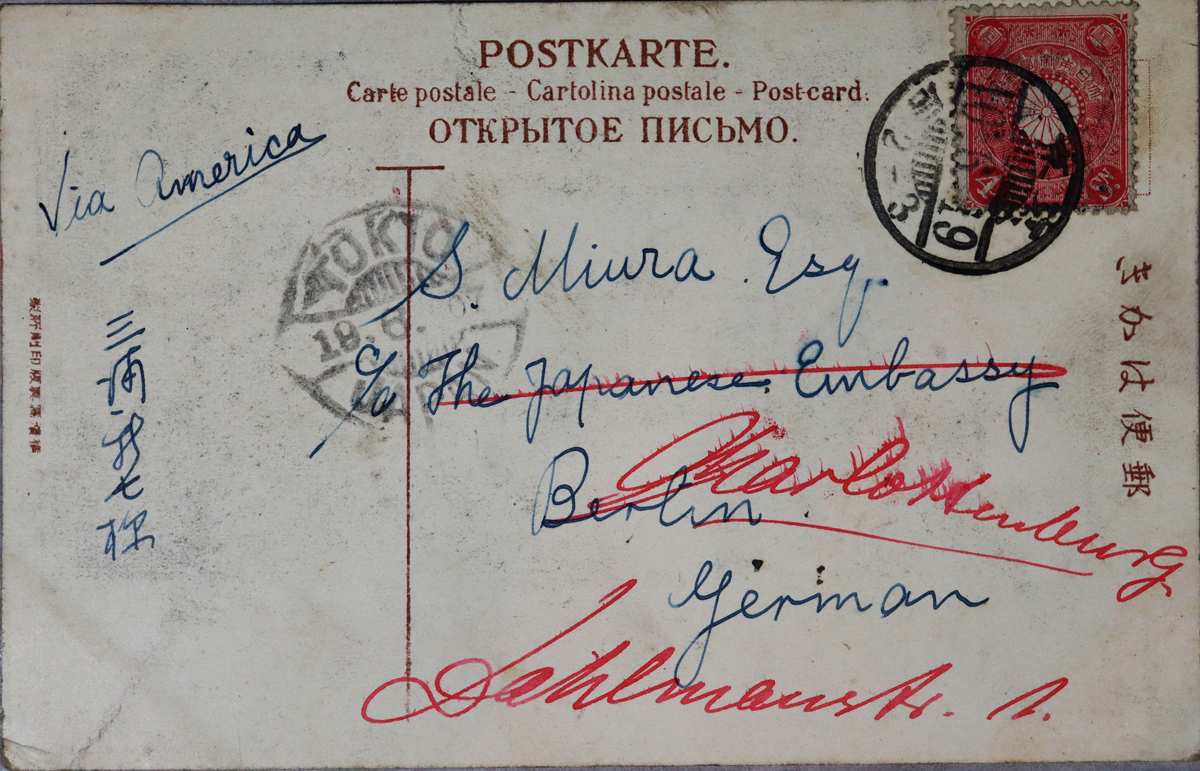 POSTKARTE.
Carte postale - Cartolina postale - Post-card.
ОТКРЫТОЕ ПИСЬМО.
Via America
TOKYO
19.6.07
JAPAN
S. Miura Esq.
c/o The Japanese Embassy
Berlin Charlottenburg
German
Dahlmannstr. 1.
きかは便郵
三浦 七 様